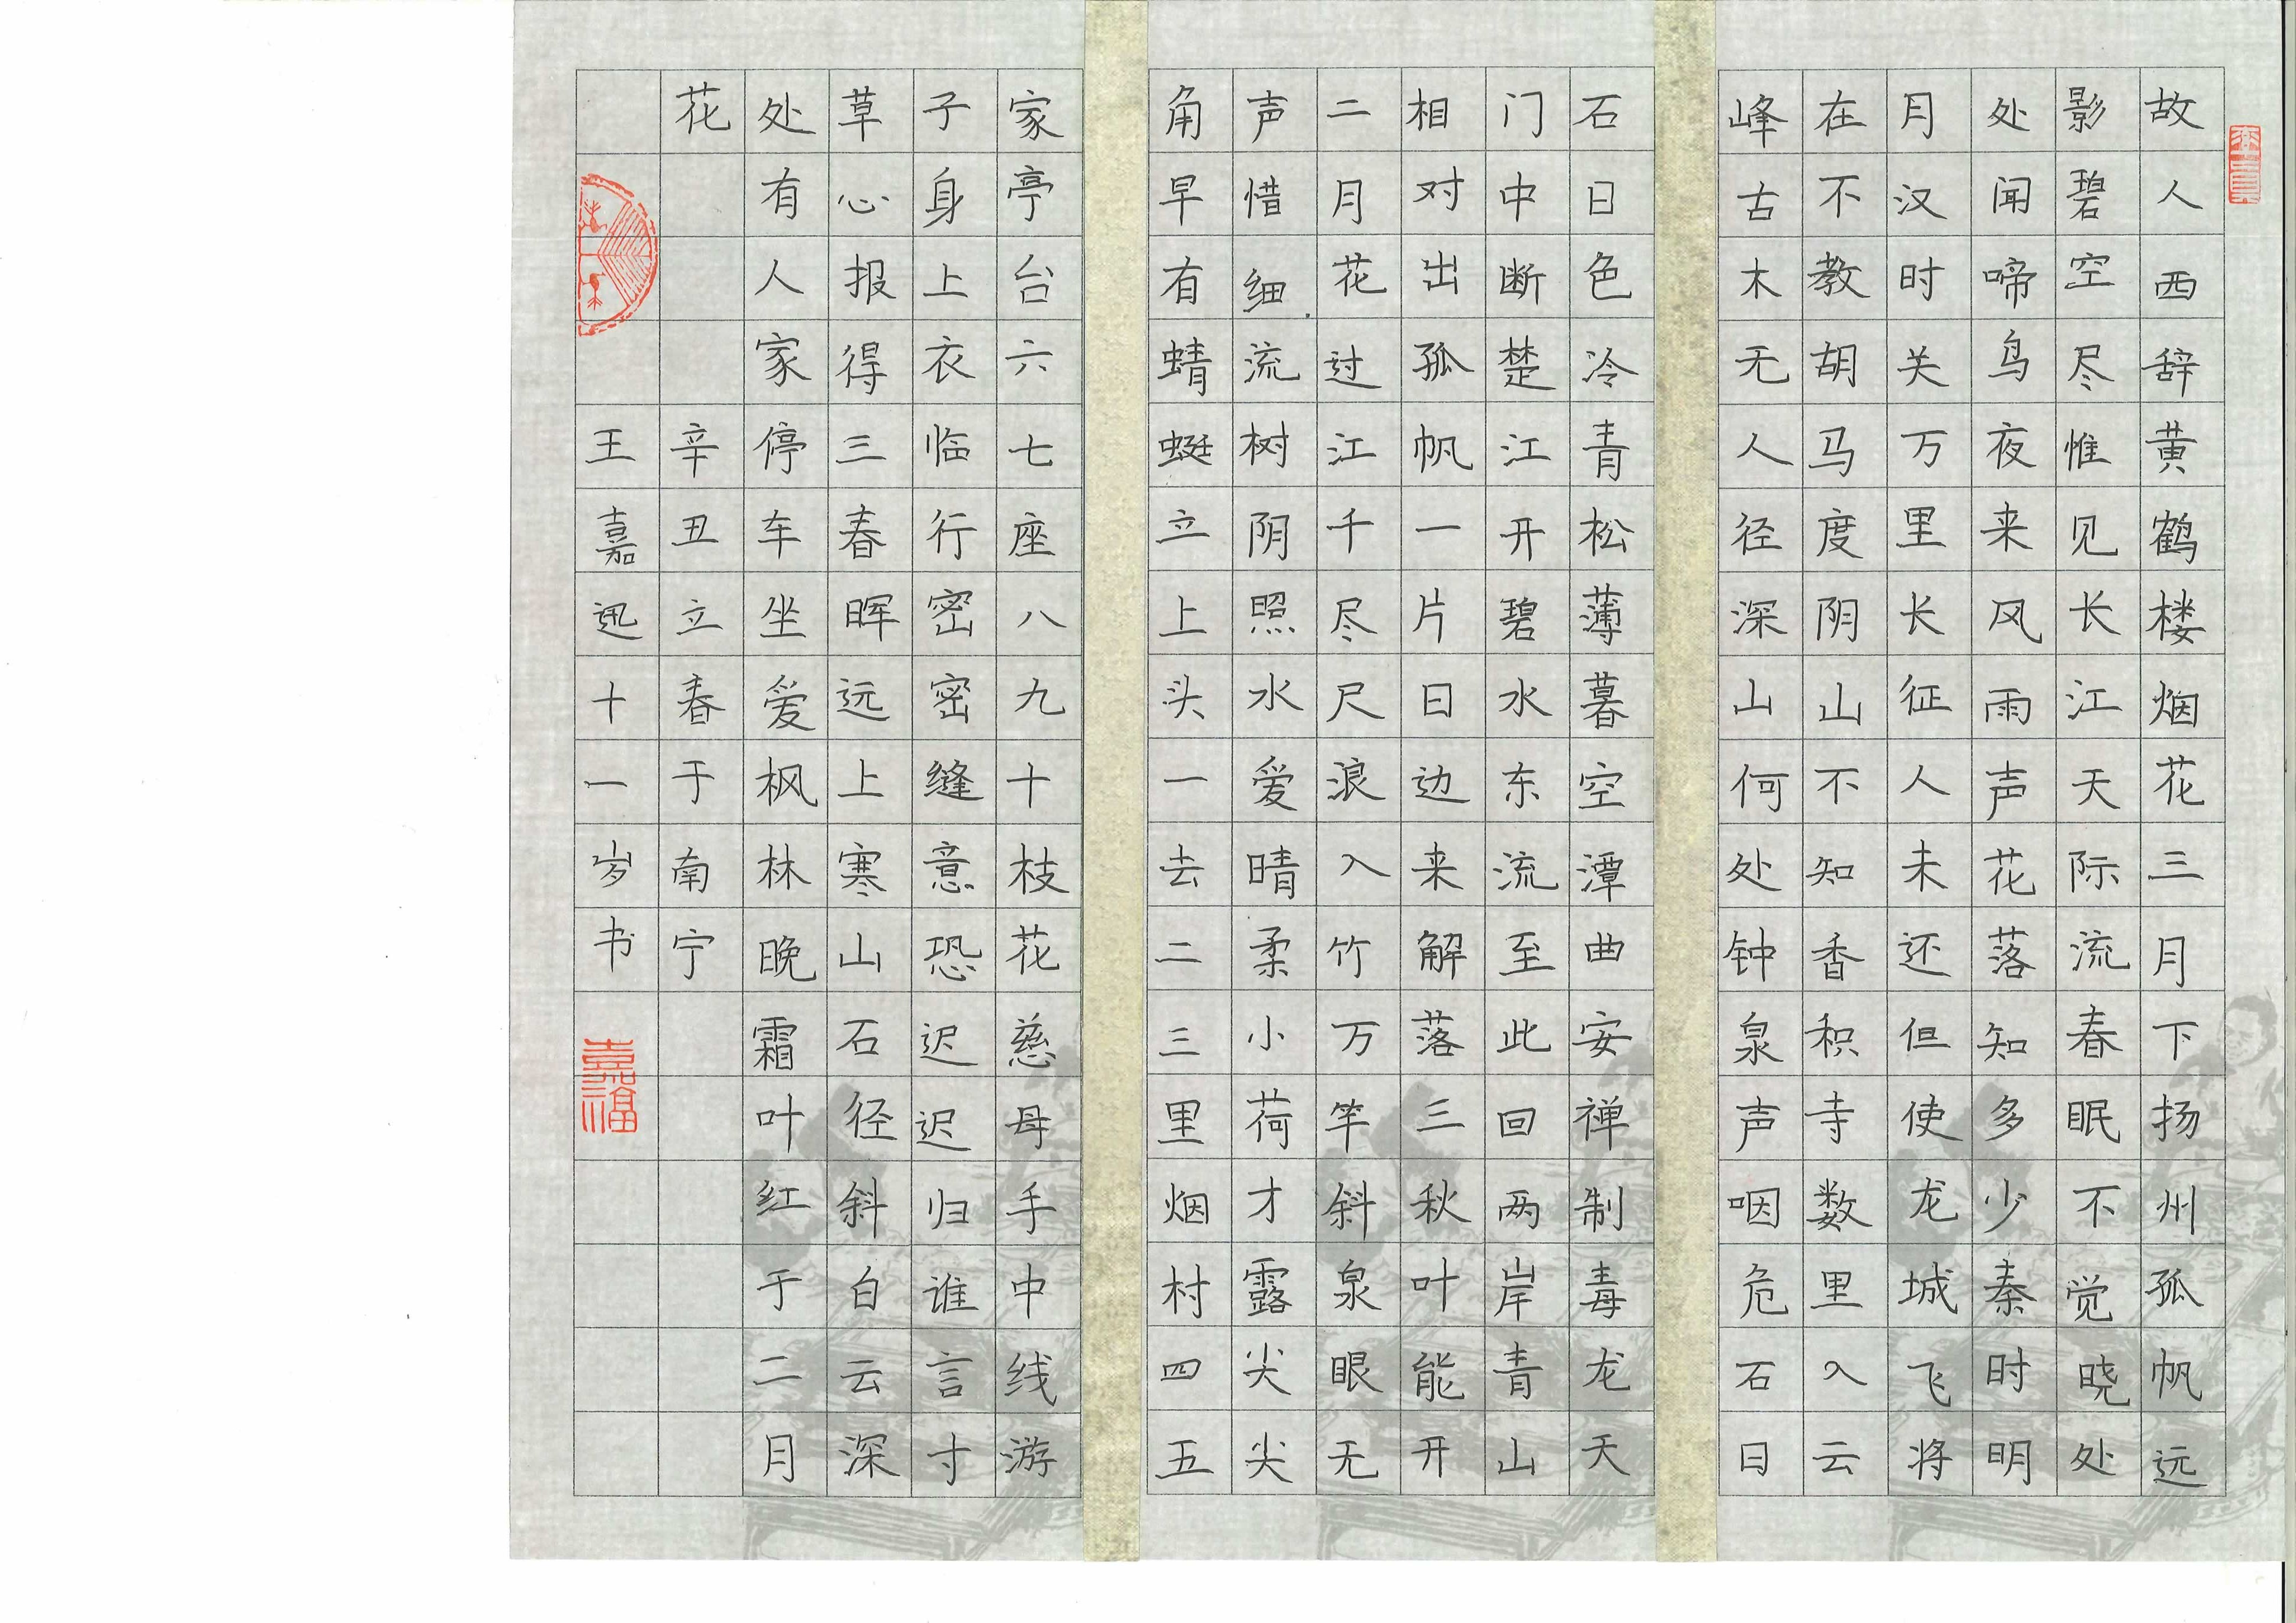 故人西辞黄鹤楼烟花三月下扬州孤帆远
影碧空尽惟见长江天际流春眠不觉晓处
处闻啼鸟夜来风雨声花落知多少秦时明
月汉时关万里长征人未还但使龙城飞将
在不教胡马度阴山不知香积寺数里入云
峰古木无人径深山何处钟泉声咽危石日
石日色冷青松薄暮空潭曲安禅制毒龙天
门中断楚江开碧水东流至此回两岸青山
相对出孤帆一片日边来解落三秋叶能开
二月花过江千尽尺浪入竹万竿斜泉眼无
声惜细流树阴照水爱晴柔小荷才露尖尖
角早有蜻蜓立上头一去二三里烟村四五
家亭台六七座八九十枝花慈母手中线游
子身上衣临行密密缝意恐迟迟归谁言寸
草心报得三春晖远上寒山石径斜白云深
处有人家停车坐爱枫林晚霜叶红于二月
花 辛丑立春于南宁
王嘉迅十一岁书